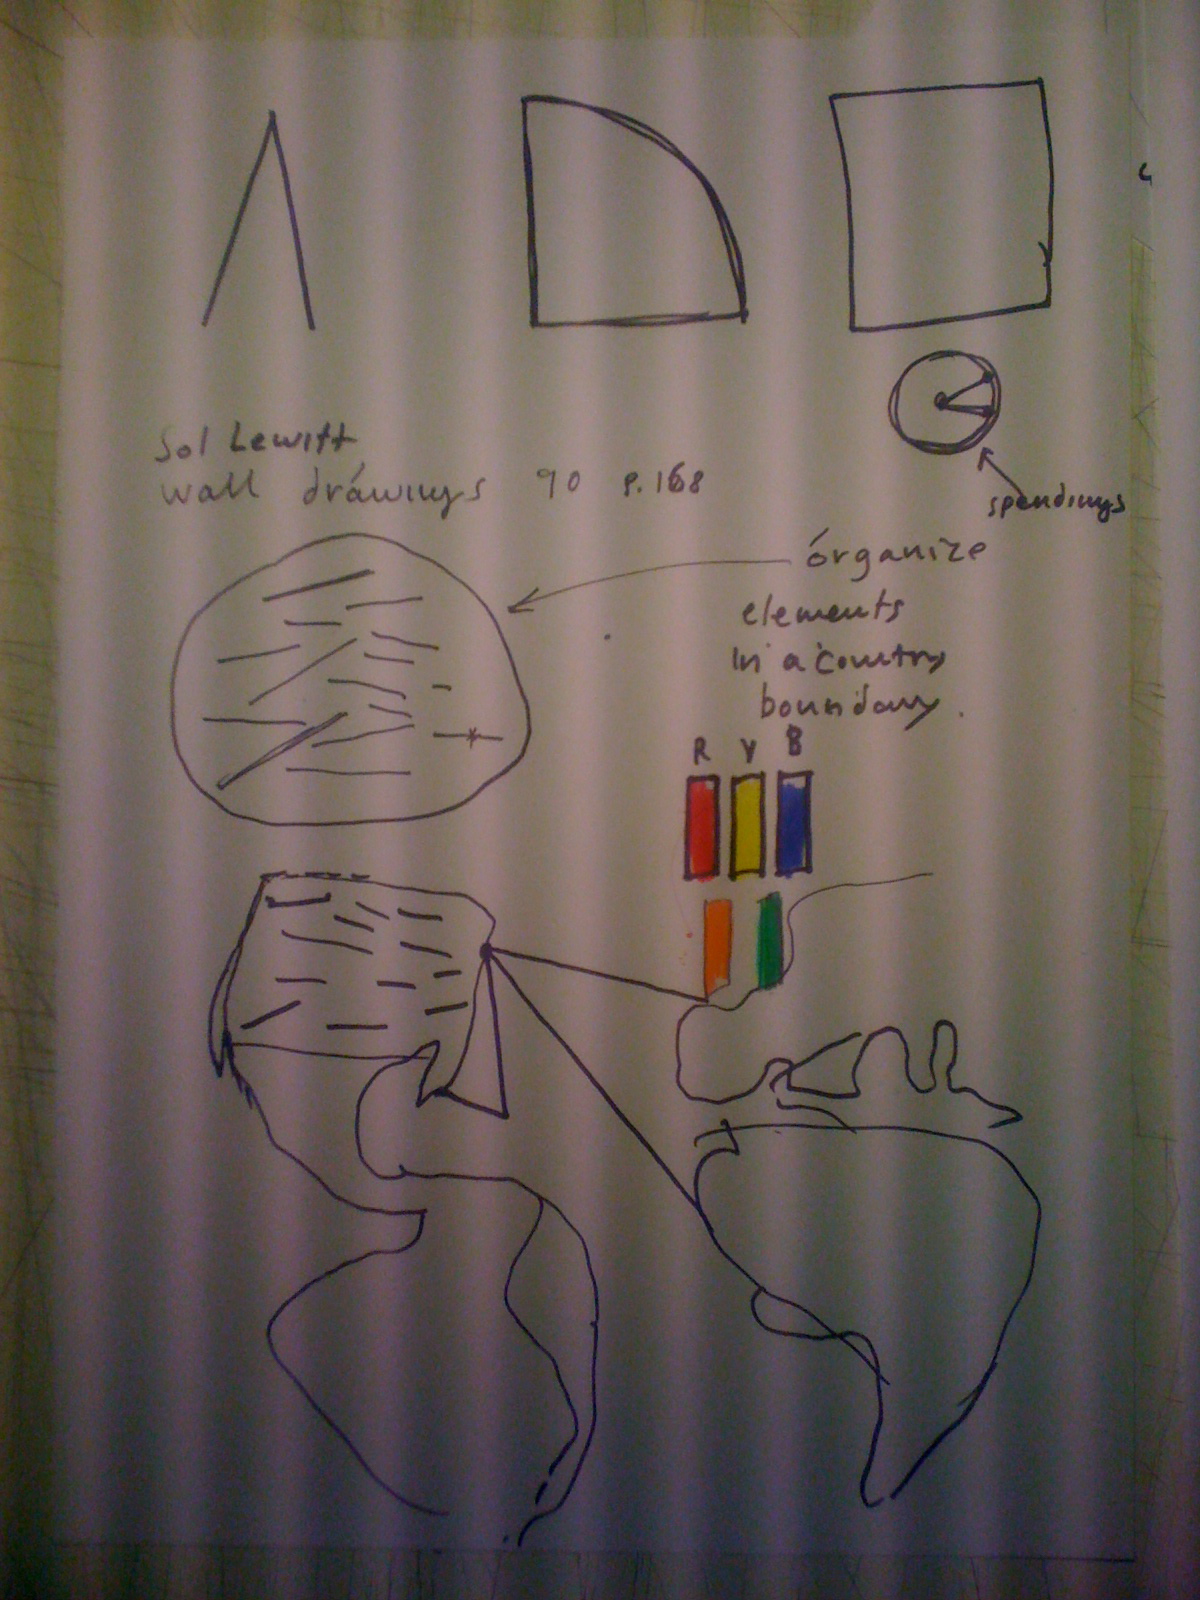 Sol Lewitt
wall drawings 90 p.168
spendings
organize
elements
in a country
boundary.
R Y B